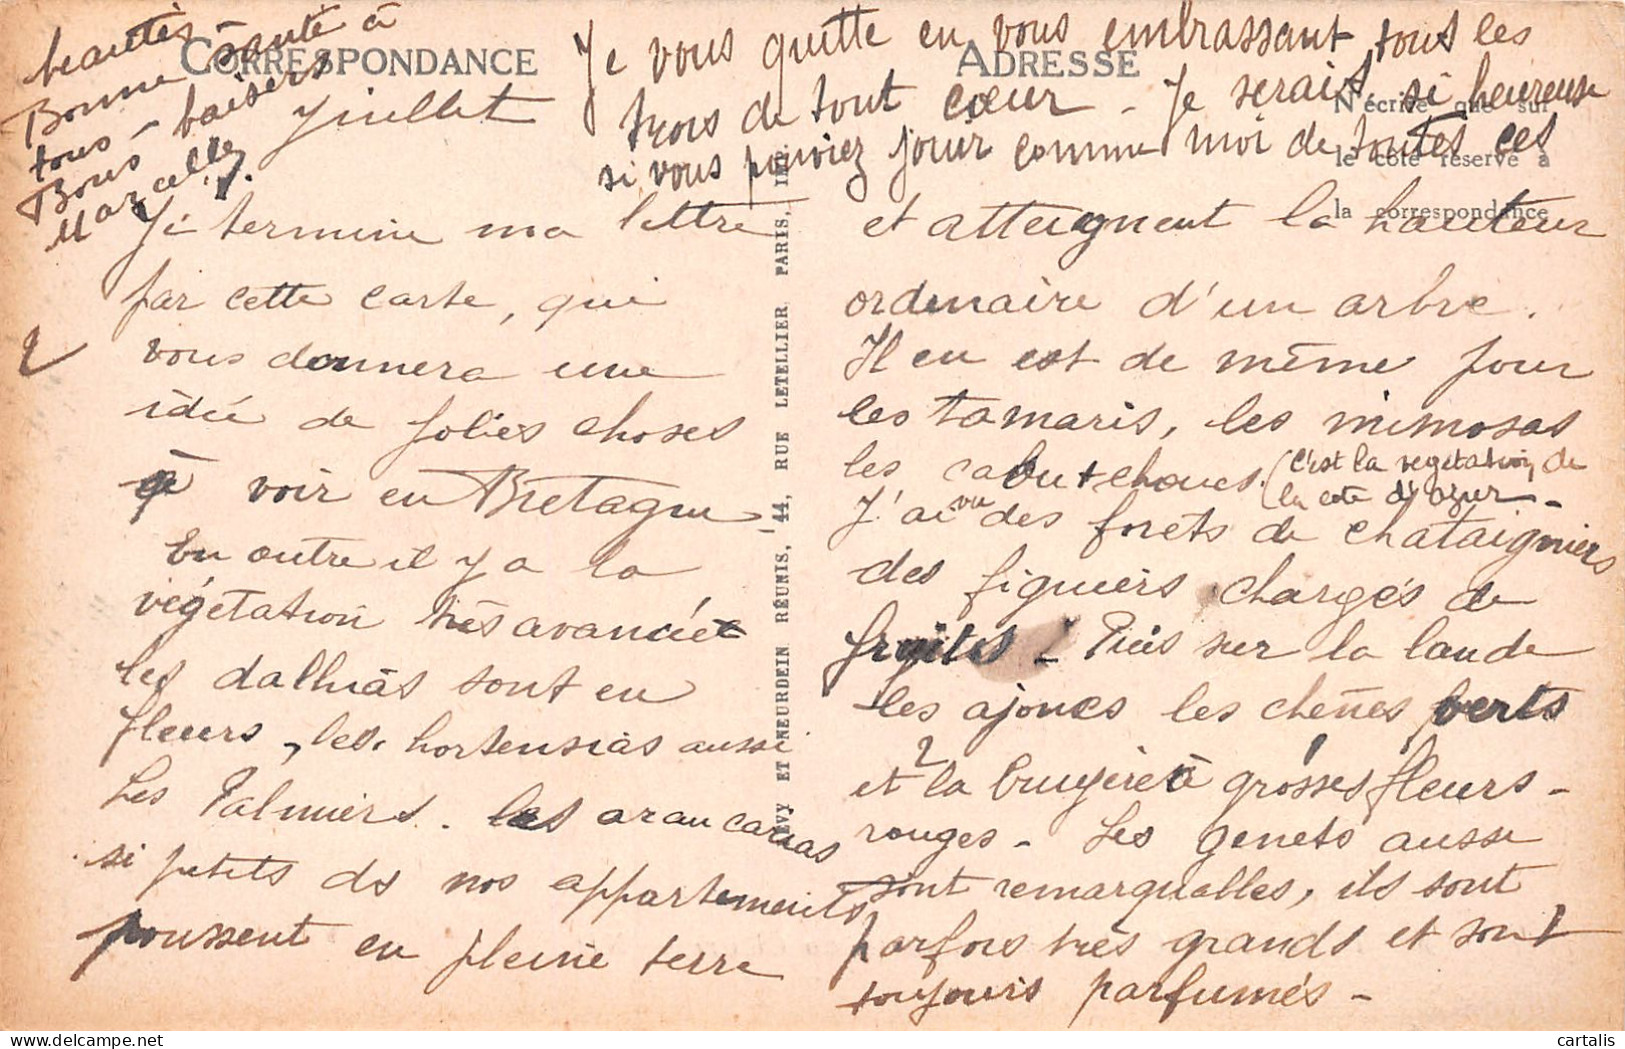 CORRESPONDANCE
ADRESSE
N'écrire que sur
le côté réservé à
la correspondance
Juillet
Je termine ma lettre
par cette carte, qui
vous donnera une
idée de jolies choses
à voir en Bretagne
En outre il y a la
végétation très avancée
les dalhias sont en
fleurs, les hortensias aussi
Les Palmiers. les araucarias
si petits ds nos appartements
poussent en pleine terre
et atteignent la hauteur
ordinaire d'un arbre.
Il en est de même pour
les tamaris, les mimosas
les cahutchoucs (c'est la vegetation, de
la cote d'azur -
J'ai vu des forets de chataigniers
des figuiers chargés de
fruits - Puis sur la lande
les ajoncs les chênes verts
et la bruyère à grosses fleurs
rouges - Les genets aussi
sont remarquables, ils sont
parfois très grands et sont
toujours parfumés -
Je vous quitte en vous embrassant tous les
trois de tout cœur - Je serais si heureuse
si vous pouviez jouir comme moi de toutes ces
beautés
Bonne santé à
tous - baisers
Bons
Marcelle
2
LÉVY ET NEURDEIN RÉUNIS, 44, RUE LETELLIER, PARIS, IMP.
cartalis
delcampe.net